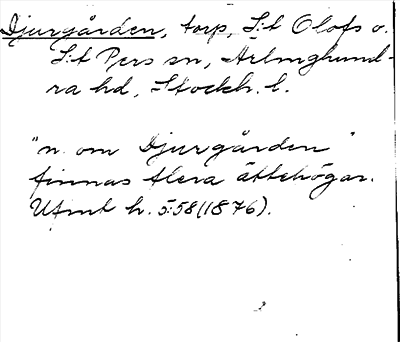 Djurgården, torp, S:t Olofs o.
S:t Pers sn, Ärlinghund-
ra hd, Stockh. l.
"n. om Djurgården"
finnas flera ättehögar.
UFmt h. 5:58 (1876).